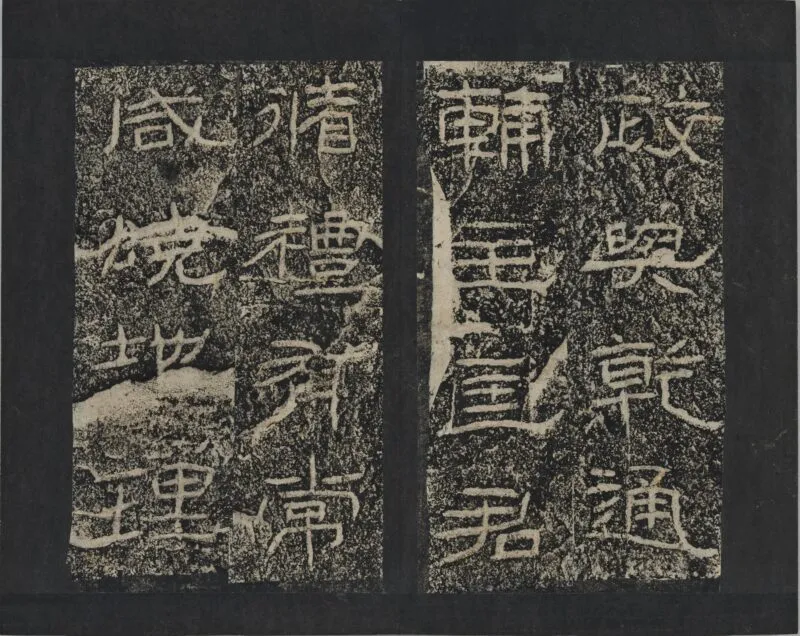 政與乾通
輔主匡君
循禮有常
咸曉地理